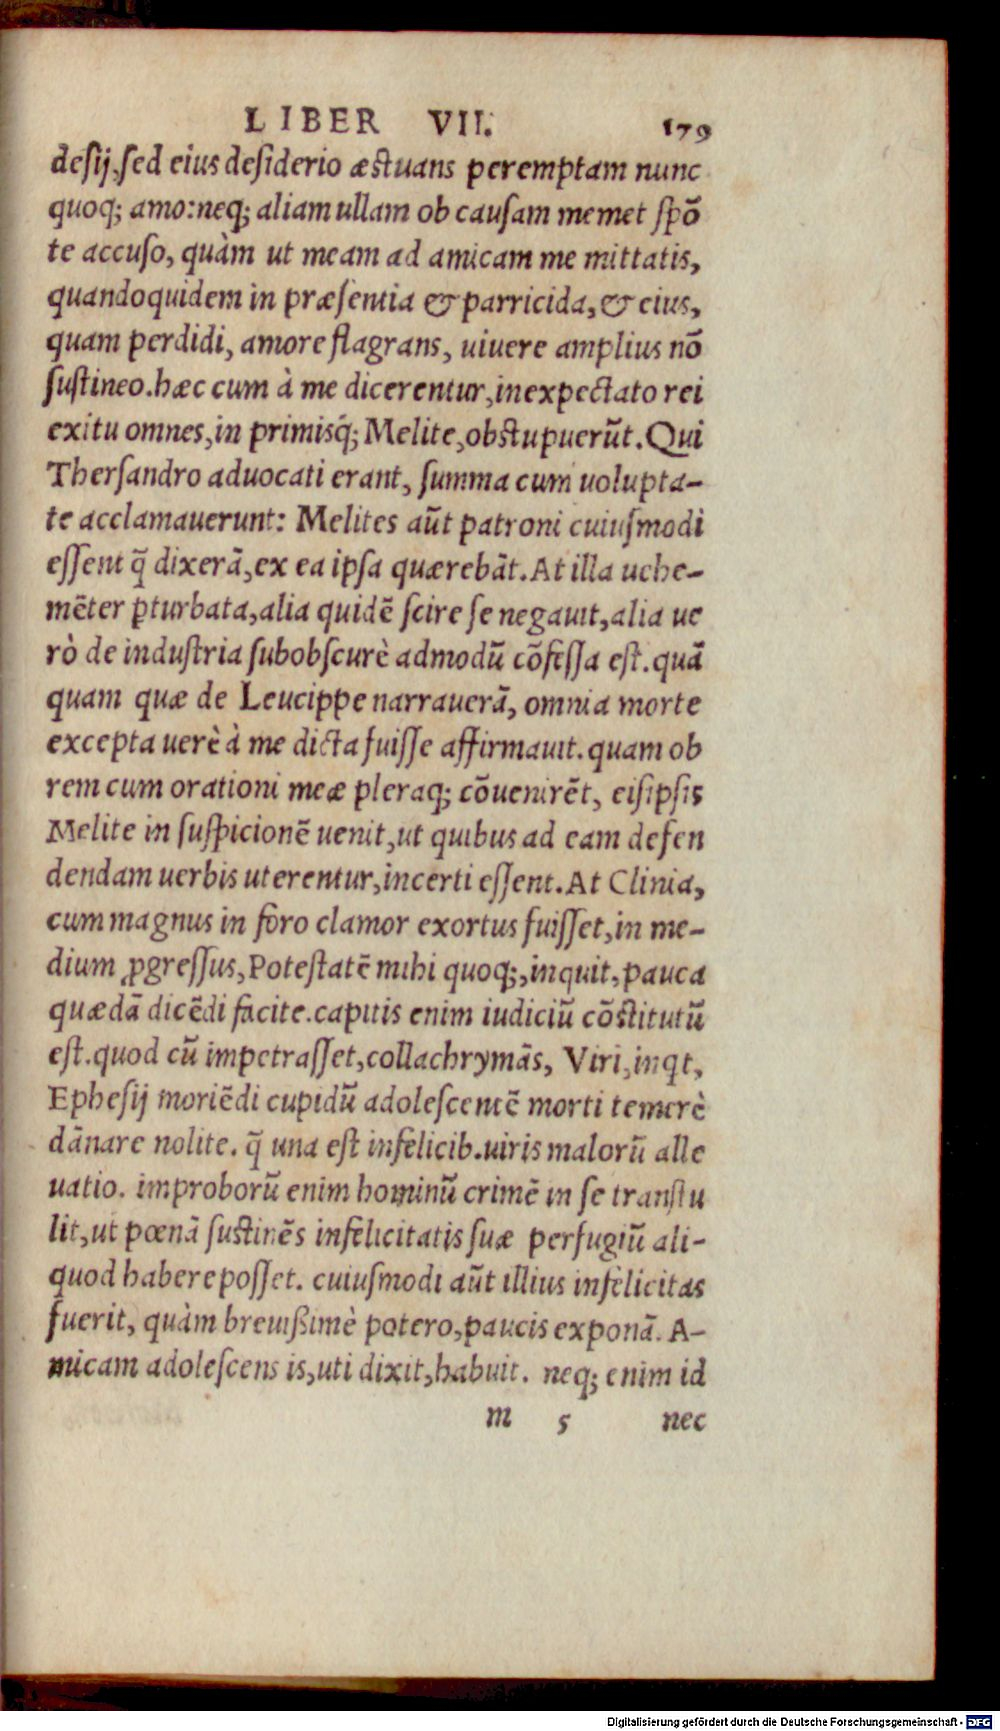 LIBER VII. 179
desij, sed eius desiderio æstuans peremptam nunc
quoq; amo: neq; aliam ullam ob causam memet spõ
te accuso, quàm ut meam ad amicam me mittatis,
quandoquidem in præsentia & parricida, & eius,
quam perdidi, amore flagrans, uiuere amplius nõ
sustineo. hæc cum à me dicerentur, inexpectato rei
exitu omnes, in primisq́; Melite, obstupuerũt. Qui
Thersandro aduocati erant, summa cum uolupta-
te acclamauerunt: Melites aũt patroni cuiusmodi
essent q̃ dixerã, ex ea ipsa quærebãt. At illa uehe-
mẽter ꝑturbata, alia quidẽ scire se negauit, alia ue
rò de industria subobscurè admodũ cõfessa est. quã
quam quæ de Leucippe narrauerã, omnia morte
excepta uerè à me dicta fuisse affirmauit. quam ob
rem cum orationi meæ pleraq; cõuenirẽt, eisipsis
Melite in suspicionẽ uenit, ut quibus ad eam defen
dendam uerbis uterentur, incerti essent. At Clinia,
cum magnus in foro clamor exortus fuisset, in me-
dium ꝓgressus, Potestatẽ mihi quoq;, inquit, pauca
quædã dicẽdi facite. capitis enim iudiciũ cõstitutũ
est. quod cũ impetrasset, collachrymãs, Viri, inqt,
Ephesij moriẽdi cupidũ adolescentẽ morti temerè
dãnare nolite. q̃ una est infelicib. uiris malorũ alle
uatio. improborũ enim hominũ crimẽ in se transtu
lit, ut pœnã sustinẽs infelicitatis suæ perfugiũ ali-
quod habere posset. cuiusmodi aũt illius infelicitas
fuerit, quàm breuißimè potero, paucis exponã. A-
micam adolescens is, uti dixit, habuit. neq; enim id
m 5 nec
Digitalisierung gefördert durch die Deutsche Forschungsgemeinschaft - DFG